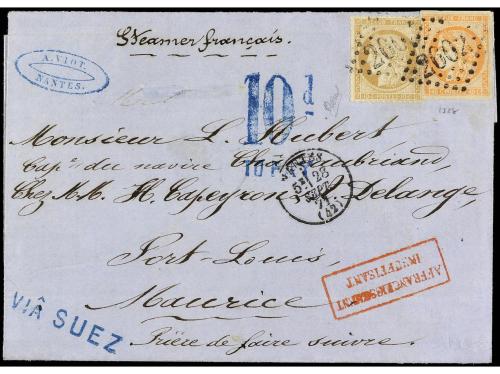 Steamer français.
A. VIOT.
NANTES.
2602
2602
10 d
Monsieur L. Hubert
Cape du navire Chateaubriand,
Chez M.M. H. Capeyron & Delange,
NANTES
5E 28
SEPT.
71
(42)
Port-Louis,
AFFRANCHISSEMENT
INSUFFISANT
Maurice
VIÂ SUEZ
Prière de faire suivre.